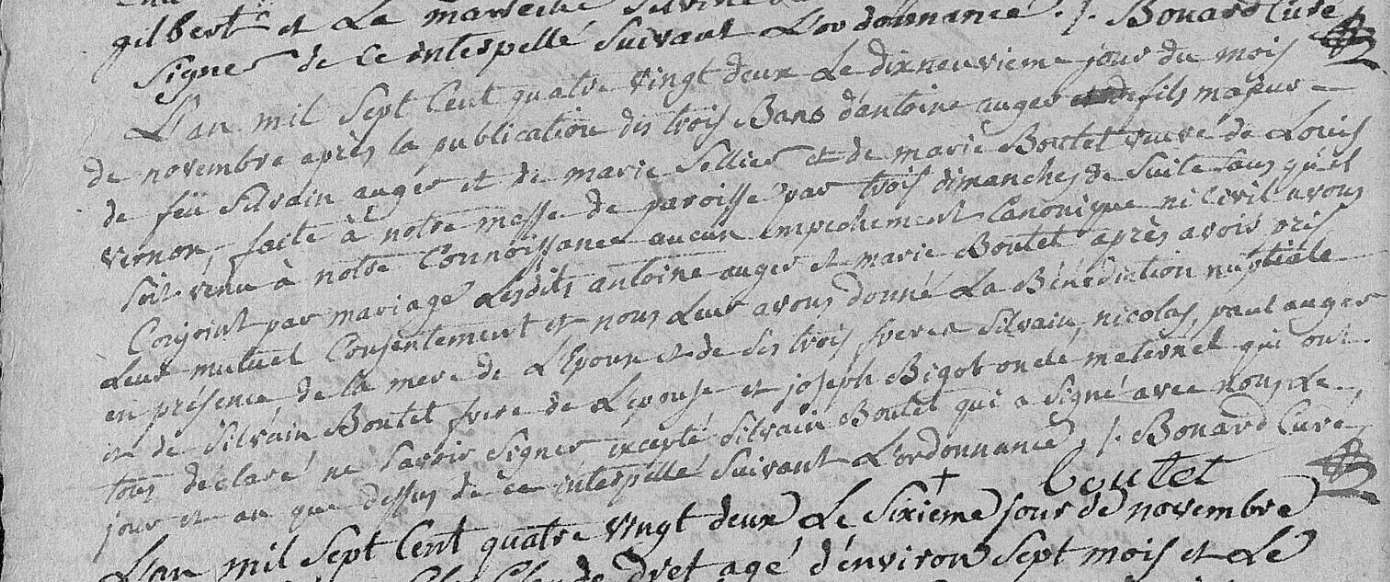 gilbert et La
signer de ce interpellé suivant L'ordonnance . /. Bouard Curé
L'an mil sept cent quatre vingt deux Le dixneuvieme jour du mois
de novembre après la publication des trois Bans d'antoine auger fils majeur
de feü silvain auger et de marie sellier et de marie Boutet veuve de Louis
vernon, faite à notre messe de paroisse par trois dimanches de suite sans qu'il
soit venu à notre connoissance aucun empechement canonique ni civil avons
conjoint par mariage Lesdits antoine auger et marie Boutet après avoir pris
Leur mutuel consentement et nous Leur avons donné La Bénédiction nuptiale
en présence de la mere de L'Epoux et de ses trois freres silvain, nicolas, paul auger
et de silvain Boutet frere de L'epouse et joseph Bigot oncle maternel qui ont
tous declaré ne savoir signer excepté silvain Boutet qui a signé avec nous Le
jour et an que dessus de ce interpellé suivant L'ordonnance, /. Bouard Curé
+ boutet
L'an mil sept cent quatre vingt deux Le sixieme jour de novembre
agé d'environ sept mois et Le